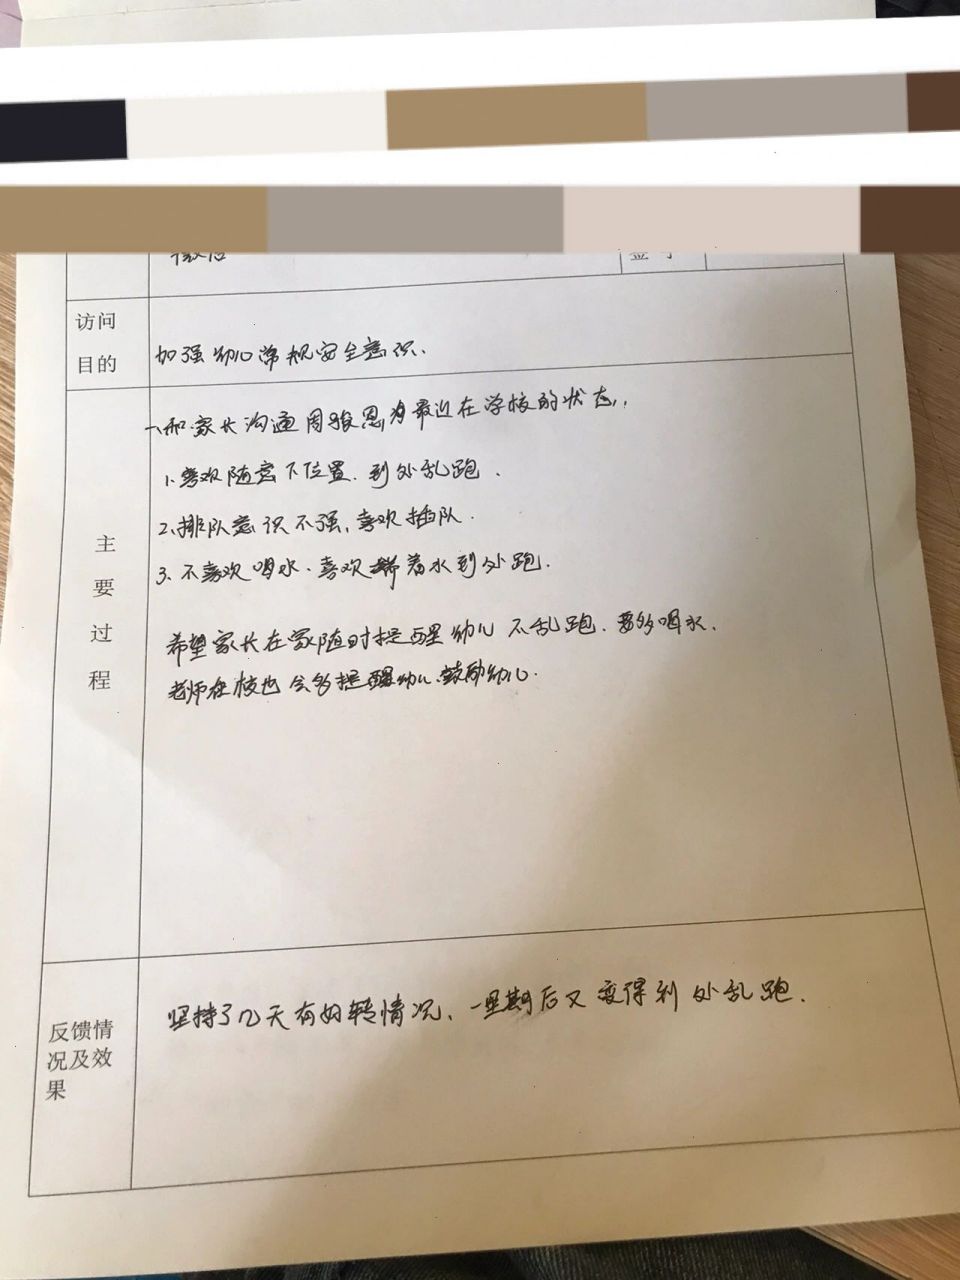 微信
访问
目的
加强幼儿常规安全意识.
一、和家长沟通周骏恩为最近在学校的状态,.
1.喜欢随意下位置.到处乱跑.
2.排队意识不强,喜欢插队.
主
要
过
程
3.不喜欢喝水.喜欢端着水到处跑.
希望家长在家随时提醒幼儿不乱跑.要多喝水.
老师在校也会多提醒幼儿.鼓励幼儿.
反馈情
况及效
果
坚持了几天有好转情况、一星期后又变得到处乱跑.